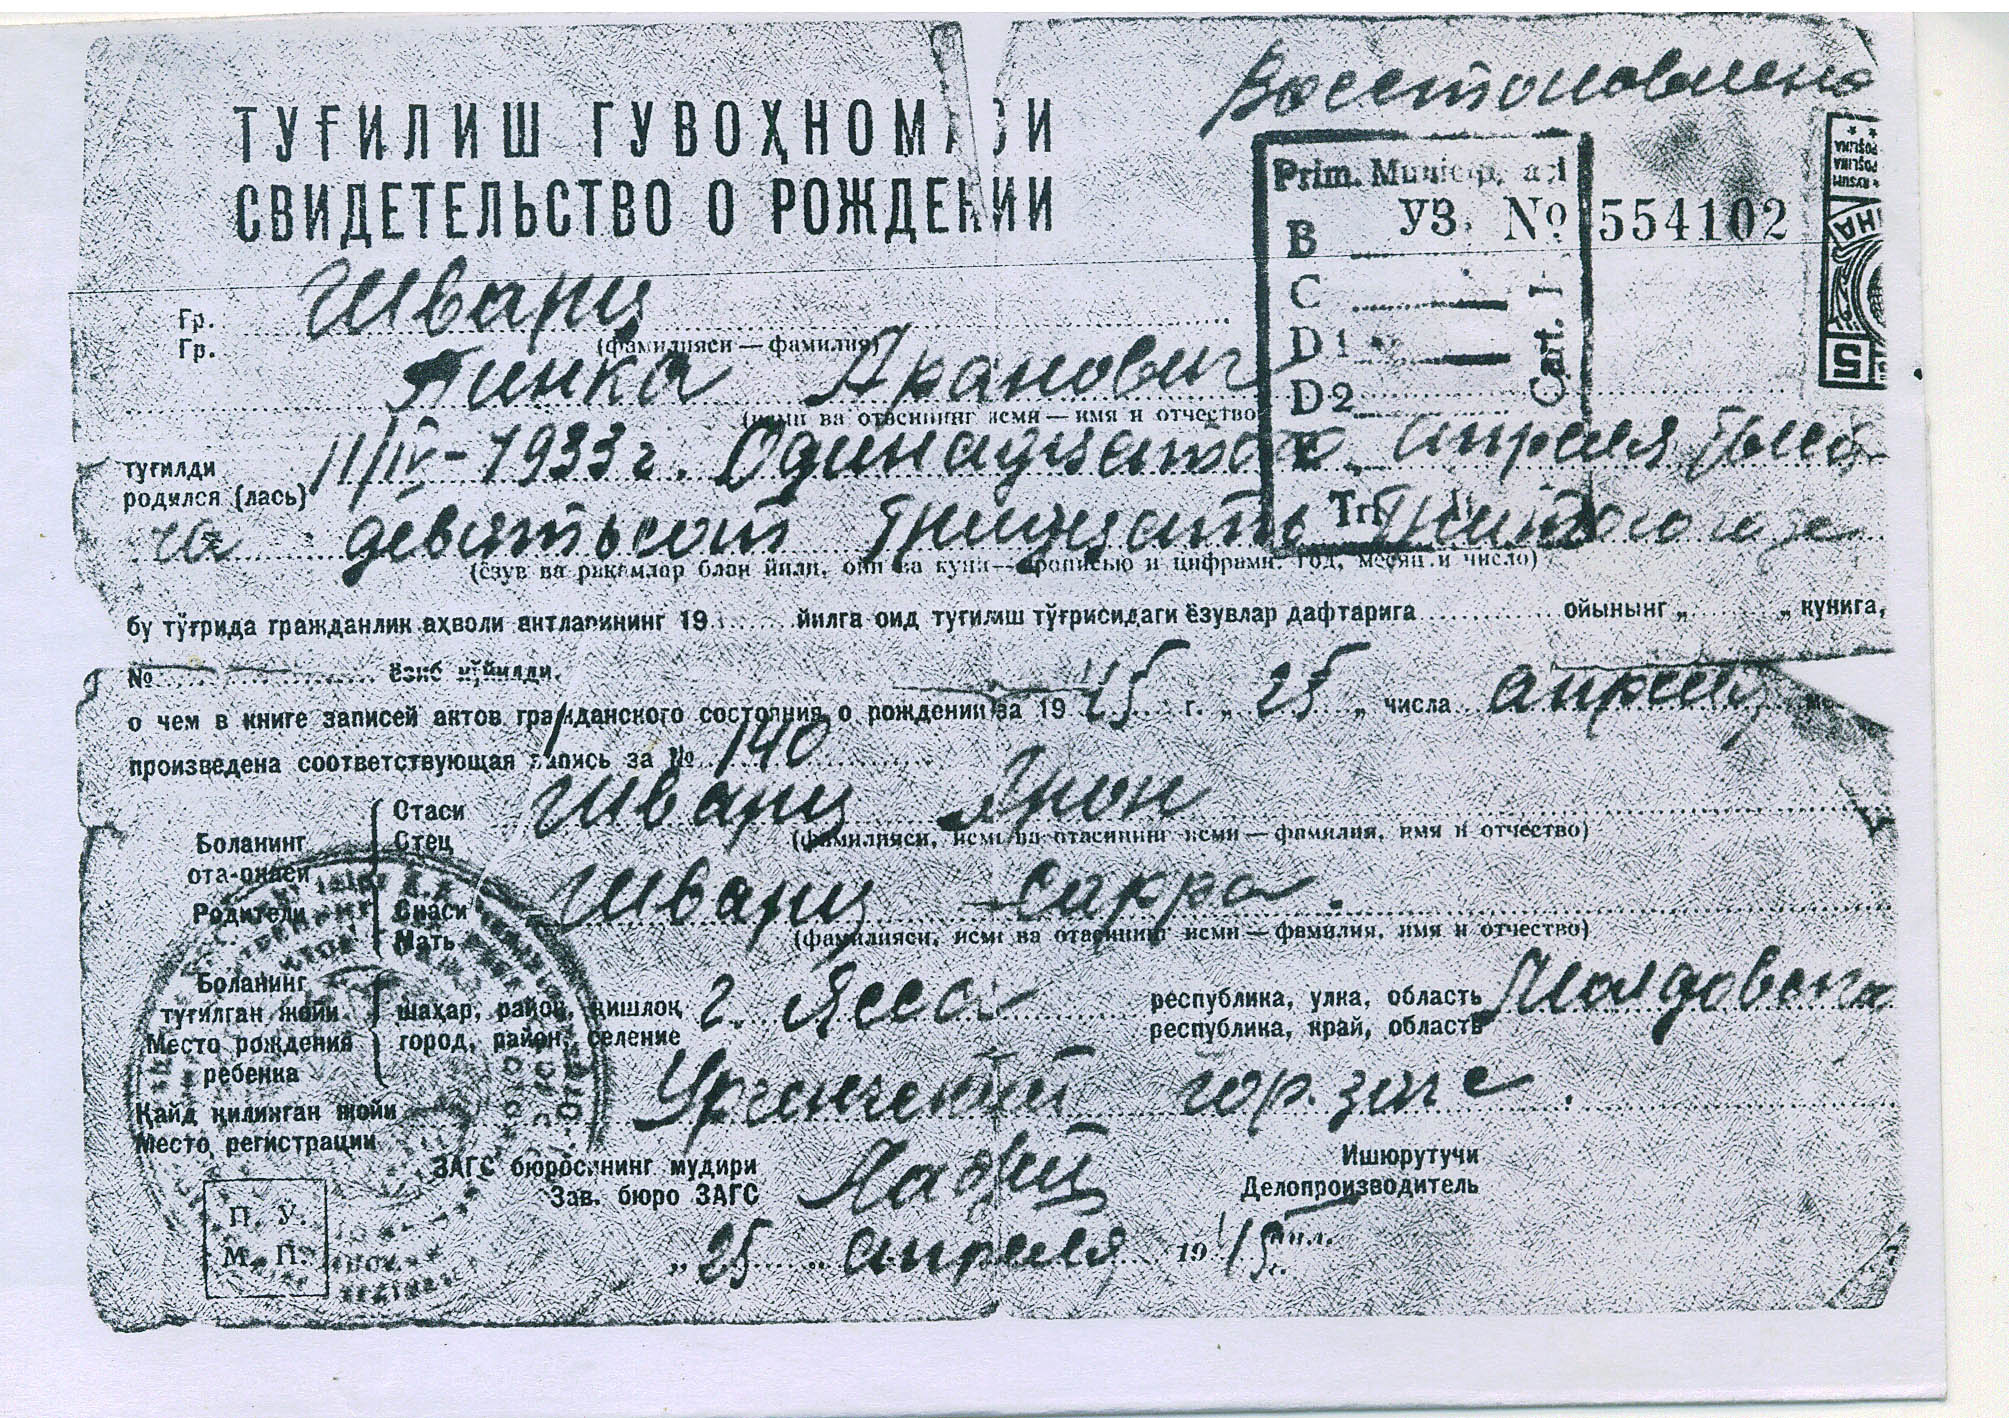 Восстоновлено
ТУҒИЛИШ ГУВОҲНОМАСИ
СВИДЕТЕЛЬСТВО О РОЖДЕНИИ
Prim. Municip.
УЗ. № 554102
B
C
D1
D2
Cart. I
5
Гр. Шварц
Гр.
(фамилияси — фамилия)
Пинка Аранович
(исми ва отасининг исми — имя и отчество
туғилди
родился (лась) 11/IV-1933 г. Одинацатого апреля тыся
ча девятьсот трицать третого года
(ёзув ва рақамлар блан йили, ойи ва куни — прописью и цифрами: год, месяц и число)
бу тўғрида гражданлик аҳволи актларининг 19...... йилга оид туғилиш тўғрисидаги ёзувлар дафтарига ............ ойынынг „........„ кунига,
№ .................... ёзиб қўйилди.
о чем в книге записей актов гражданского состояния о рождении за 1945 г. „ 25 „ числа апреля
произведена соответствующая запись за № 140
Боланинг
ота-онаси
Родители
Отаси
Отец
Шварц Арон
(фамилияси, исми ва отасининг исми — фамилия, имя и отчество)
Онаси
Мать
Шварц Сарра.
(фамилияси, исми ва отасининг исми — фамилия, имя и отчество)
Боланинг
туғилган жойи
Место рождения
ребенка
шаҳар, район, қишлоқ
город, район, селение
г. Ясса
республика, улка, область
республика, край, область
Молдовска
Қайд қилинган жойи
Место регистрации
Ургенчский гор. загс.
ЗАГС бюросининг мудири
Зав. бюро ЗАГС
Ишюрутучи
Делопроизводитель
„ 25 „ апреля 1945 йил.
г.
П. У.
М. П.